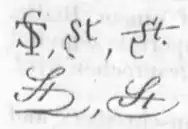 St, St.
St, St